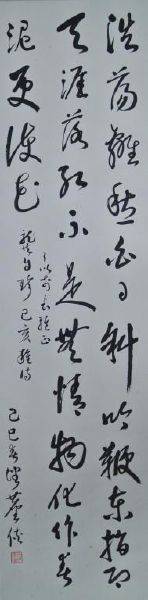 浩荡离愁白日斜吟鞭东指即
天涯落红不是无情物化作春
泥更护花
龚自珍己亥杂诗
己巳